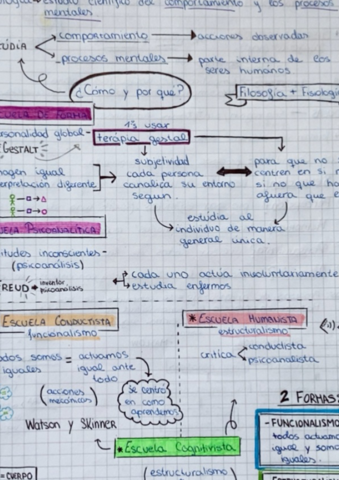 estudio científico del comportamiento y los procesos
mentales
comportamiento → acciones observadas
procesos mentales → parte interna de los
seres humanos
¿Cómo y por qué?
Filosofía + Fisiolog
1ª usar
personalidad global - terapia gestal
GESTALT
imagen igual
interpretación diferente
subjetividad
cada persona
canaliza su entorno
segun.
para que no
contren en si
si no que ha
afuera que e
estudia al
individuo de manera
general unica.
inconscientes -
(psicoanálisis)
FREUD → inventor
psicoanálisis
cada uno actua involuntariamente
estudia enfermos
ESCUELA CONDUCTISTA
funcionalismo
todos somos = actuamos
iguales igual ante
todo
(acciones
mecánicas)
Watson y SKinner
se centró
en como
aprendemos
* ESCUELA HUMANISTA
estructuralismo
critica
conductista
psicoanalista
2 FORMAS:
- FUNCIONALISMO
todos actuamo
igual y somo
iguales.
* Escuela Cognitivista
(estructuralismo)
= CUERPO